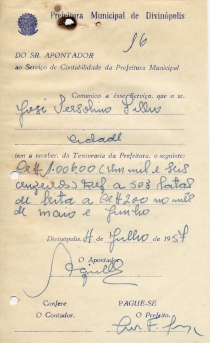 Prefeitura Municipal de Divinópolis
16
DO SR. APONTADOR
ao Serviço de Contabilidade da Prefeitura Municipal
Comunico a êsse Serviço, que o sr.
José Persolino Filho
cidade
tem a receber, da Tesouraria da Prefeitura, o seguinte:
Cr$ 1.006,00 (Um mil e seis
cruzeiros) Ref a 503 latas
de brita a Cr$ 2,00 no mês
de maio e Junho
Divinópolis, 4 de Julho de 1957
O Apontador
Confere
PAGUE-SE
O Contador.
O Prefeito.